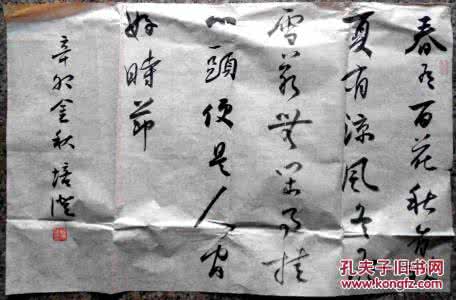 春有百花秋有月
夏有涼風冬有
雪若無閑事掛
心頭便是人間
好時節
辛卯金秋培
孔夫子旧书网
KONGFZ.COM